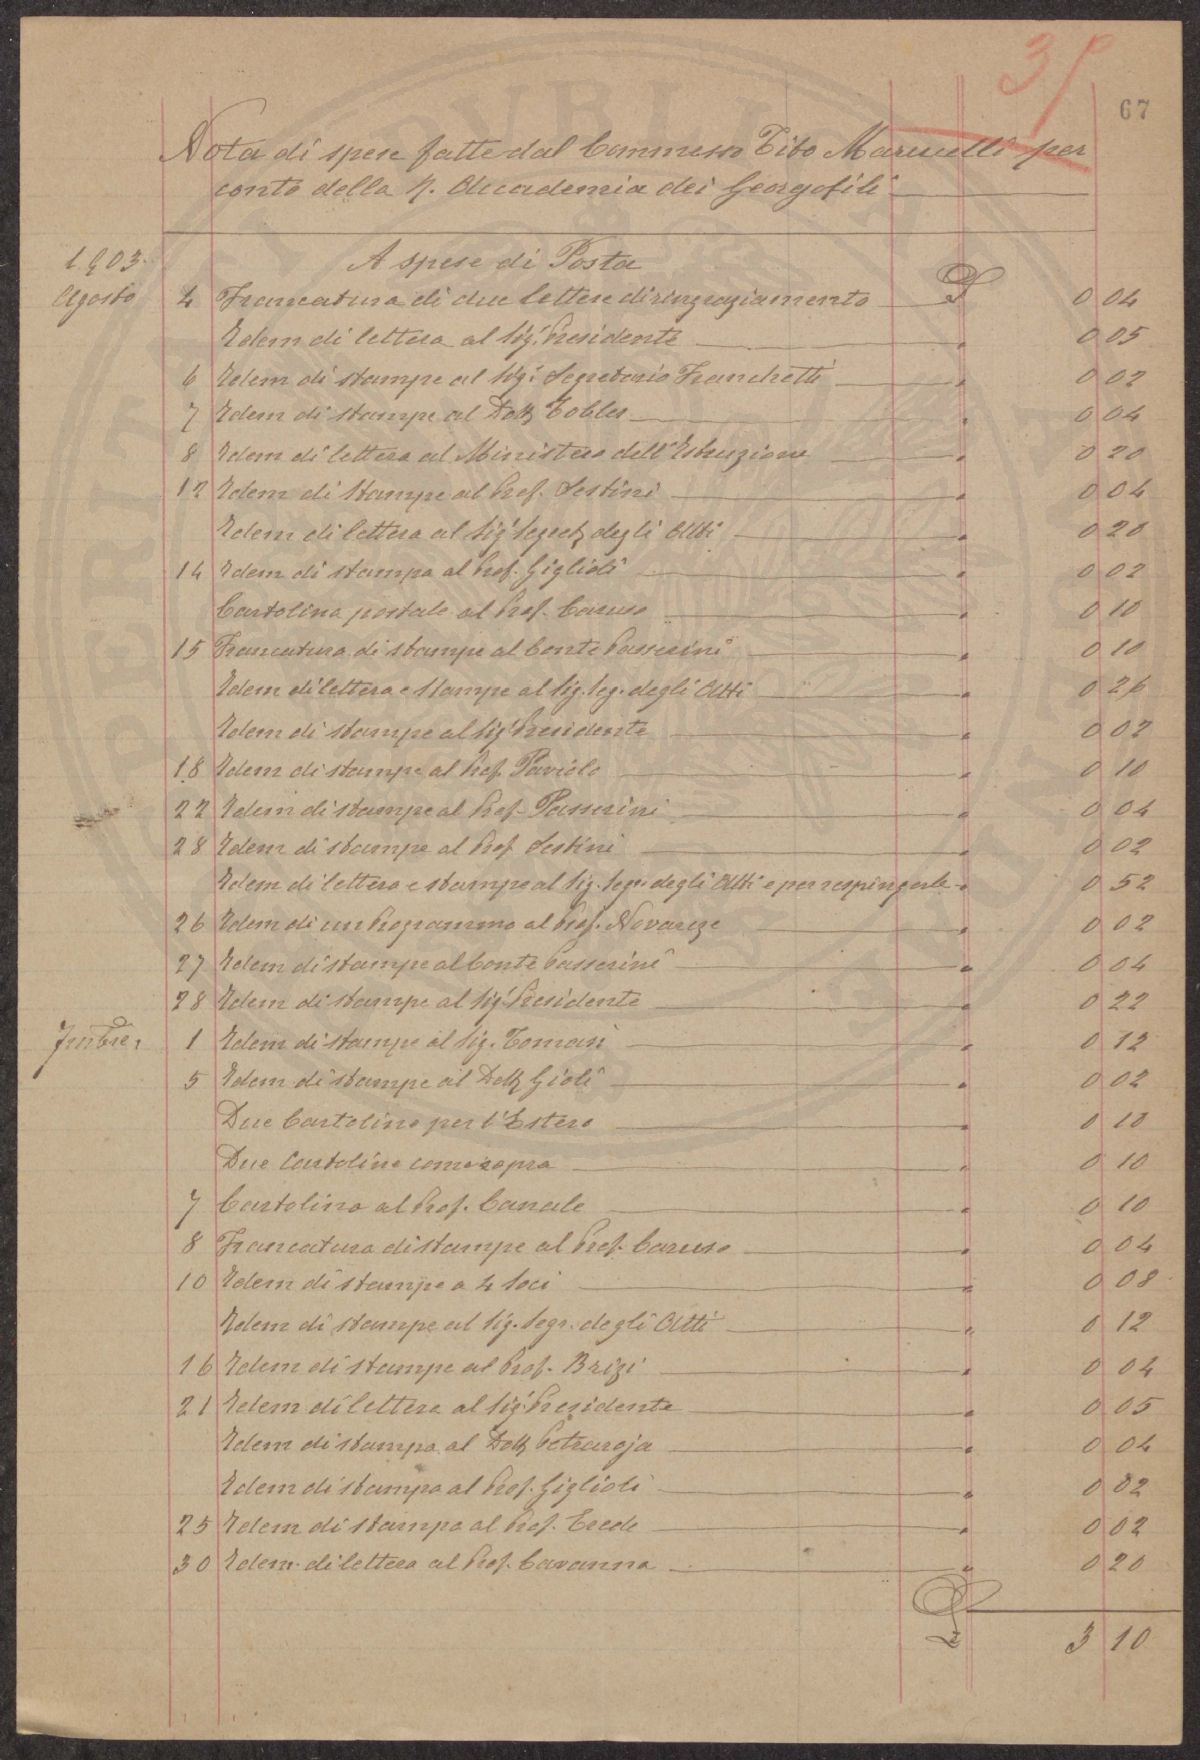 3/
67
Nota di spese fatte dal Commesso Tito Marucelli per
conto della R. Accademia dei Georgofili
1903.
A spese di Posta
Agosto 4 Francatura di due lettere di ringraziamento £ 0 04
Idem di lettera al Sig. Presidente " 0 05
6 Idem di stampe al Sig. Segretario Franchetti " 0 02
7 Idem di stampe al Dott. Tobler " 0 04
8 Idem di lettera al Ministero dell'Istruzione " 0 20
12 Idem di stampe al Prof. Sestini " 0 04
Idem di lettera al Sig. Segret. degli Atti " 0 20
14 Idem di stampa al Prof. Giglioli " 0 02
Cartolina postale al Prof. Caruso " 0 10
15 Francatura di stampe al Conte Passerini " 0 10
Idem di lettera e stampe al Sig. Seg. degli Atti " 0 26
Idem di stampe al Sig. Presidente " 0 02
18 Idem di stampe al Prof. " 0 10
22 Idem di stampe al Prof. Passerini " 0 04
28 Idem di stampe al Prof. Sestini " 0 02
Idem di lettera e stampe al Sig. Segr. degli Atti e per respingerle " 0 52
26 Idem di un Programma al Prof. Novarese " 0 02
27 Idem di stampe al Conte Passerini " 0 04
28 Idem di stampe al Sig. Presidente " 0 22
7mbre, 1 Idem di stampe al Sig. " 0 12
5 Idem di stampe al Dott. Gioli " 0 02
Due Cartoline per l'Estero " 0 10
Due Cartoline come sopra " 0 10
7 Cartolina al Prof. Canale " 0 10
8 Francatura di stampe al Prof. Caruso " 0 04
10 Idem di stampe a 4 Soci " 0 08
Idem di stampe al Sig. Segr. degli Atti " 0 12
16 Idem di stampe al Prof. Brizi " 0 04
21 Idem di lettera al Sig. Presidente " 0 05
Idem di stampa al Dott. Petraroja " 0 04
Idem di stampa al Prof. Giglioli " 0 02
25 Idem di stampa al Prof. Erede " 0 02
30 Idem di lettera al Prof. Cavanna " 0 20
£ 3 10